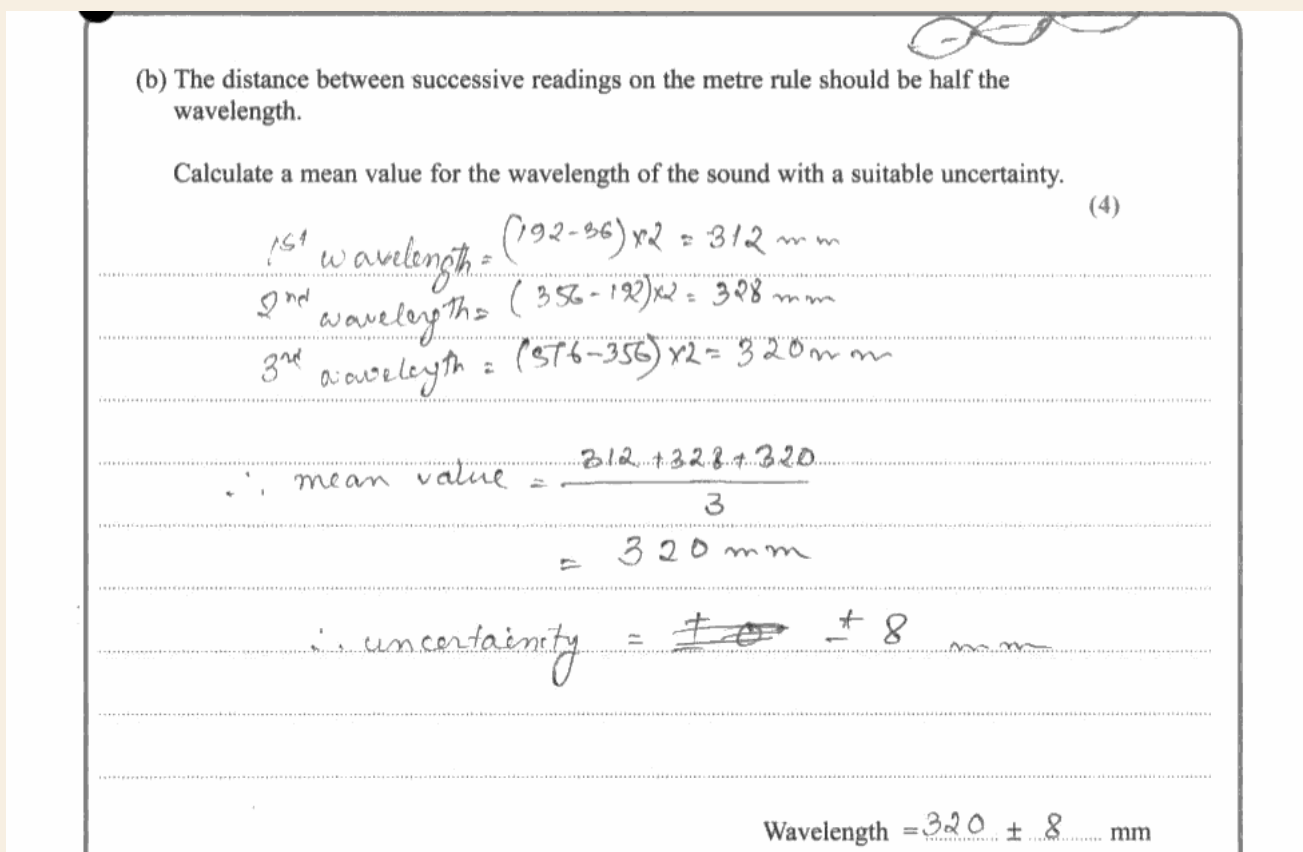 (b) The distance between successive readings on the metre rule should be half the
wavelength.
Calculate a mean value for the wavelength of the sound with a suitable uncertainty.
(4)
1st wavelength = (192-36)x2 = 312 mm
2nd wavelength = (356-192)x2 = 328 mm
3rd wavelength = (576-356)x2 = 320mm
∴ mean value = 312 + 328 + 320
3
= 320 mm
∴ uncertainity = ± 8 mm
Wavelength = 320 ± 8 mm